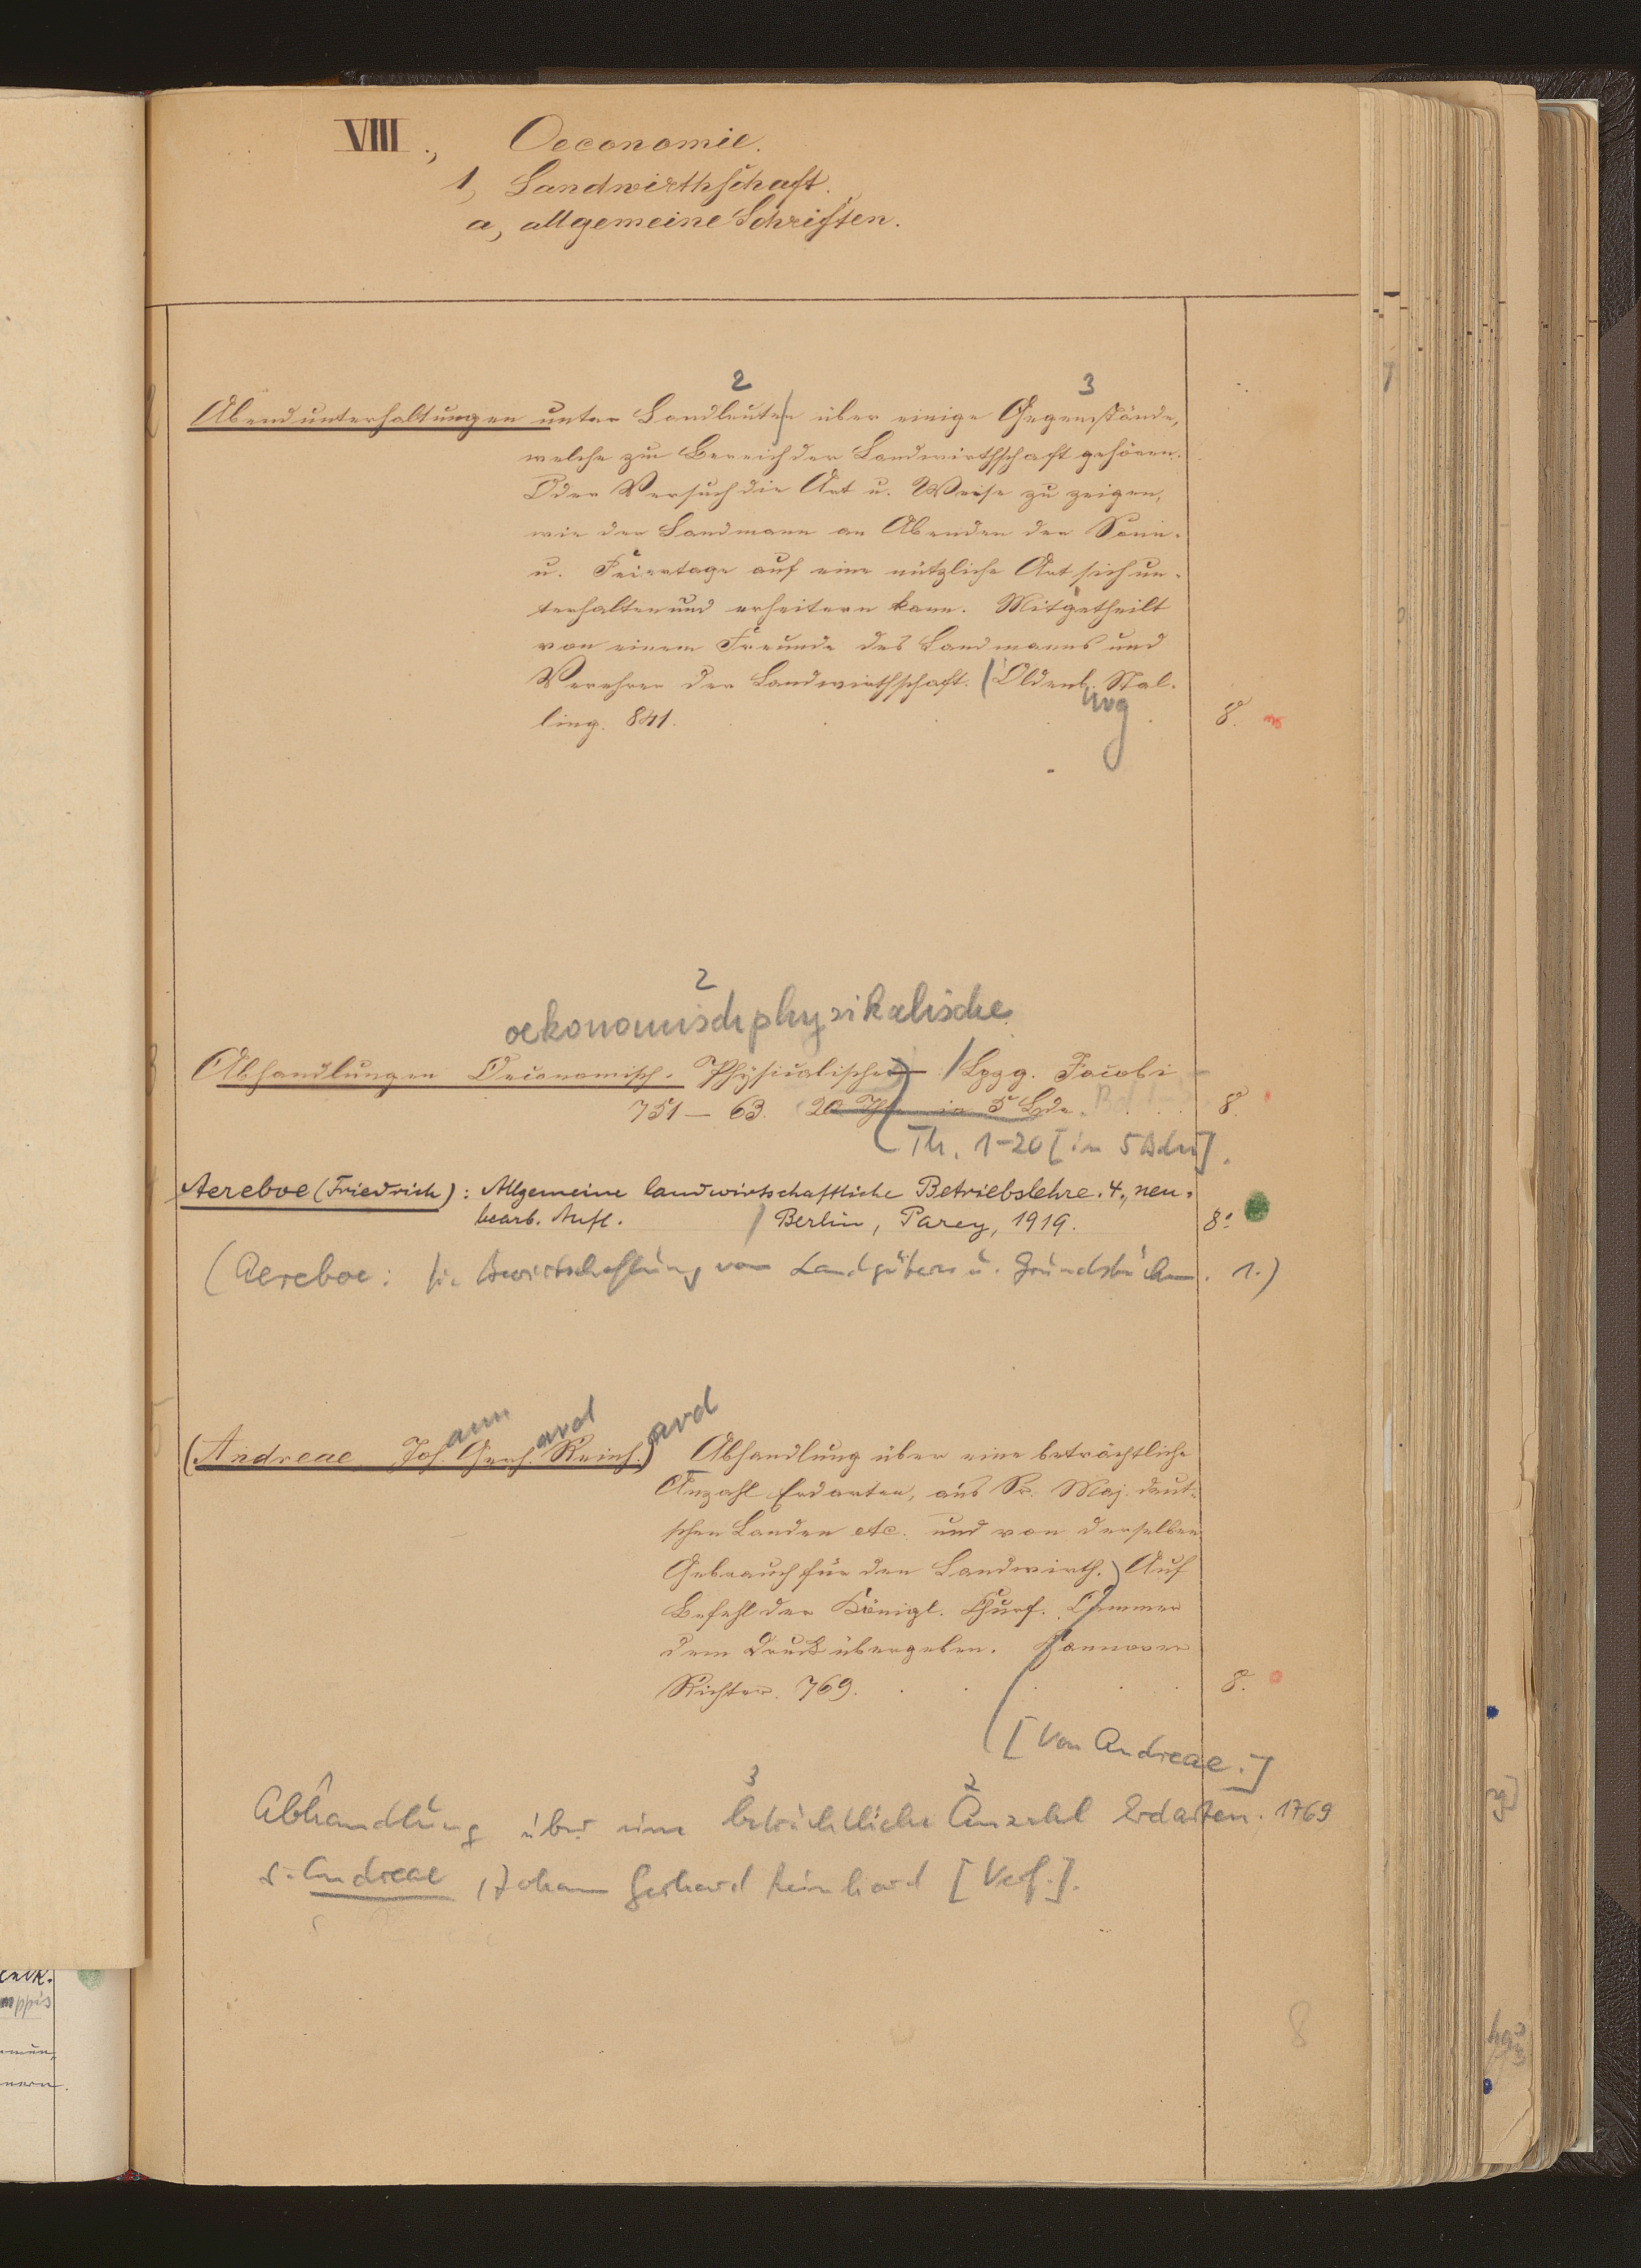 VIII., Oeconomie.
1, Landwirthschaft.
a, allgemeine Schriften.
2 3
Abendunterhaltungen unter Landleuten über einige Gegenstände,
welche zum Bereich der Landwirthschaft gehören.
Oder Versuch die Art u. Weise zu zeigen,
wie der Landmann an Abenden der Sonn-
u. Feiertage auf eine nützliche Art sich un-
terhalten und erheitern kann. Mitgetheilt
von einem Freunde des Landmanns und
Verehrer der Landwirthschaft. (Oldenb. Stal-
urg
ling. 841. 8.
2
oekonomischphysikalische
Abhandlungen Oeconomisch-Physicalische / Lpzg. Jacobi
751–63. 20 Thle in 5 Bde. 8.
Th. 1–20 [in 5 Bdn].
Aereboe (Friedrich): Allgemeine landwirtschaftliche Betriebslehre. 4., neu-
bearb. Aufl. / Berlin, Parey, 1919. 8°
(Aereboe: Die Bewirtschaftung von Landgütern u. Grundstücken. 1.)
ann ard ard
(Andreae Joh. Gerh. Reinh.) Abhandlung über eine beträchtliche
Anzahl Erdarten, aus Sr. Maj. deut-
schen Landen etc. und von derselben
Gebrauch für den Landwirth. Auf
Befehl der Königl. Churf. Cammer
dem Druck übergeben. Hannover
Richter. 769. 8.
[Von Andreae.]
3 2
Abhandlung über eine beträchtliche Anzahl Erdarten. 1769
s. Andreae, Johann Gerhard Reinhard [Verf.].
8